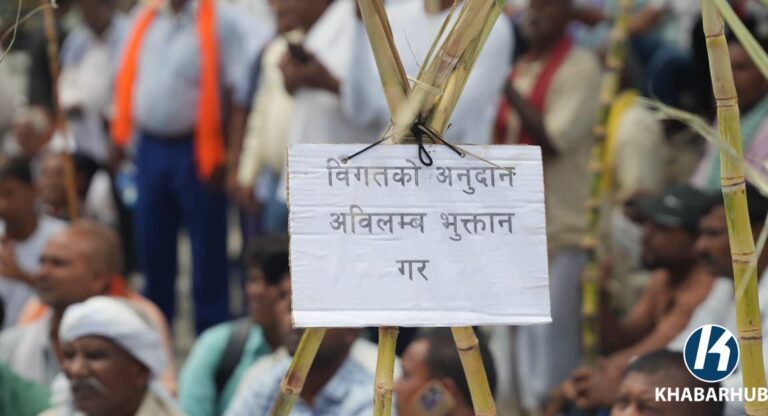 विगतको अनुदान
अविलम्ब भुक्तान
गर
KHABARHUB